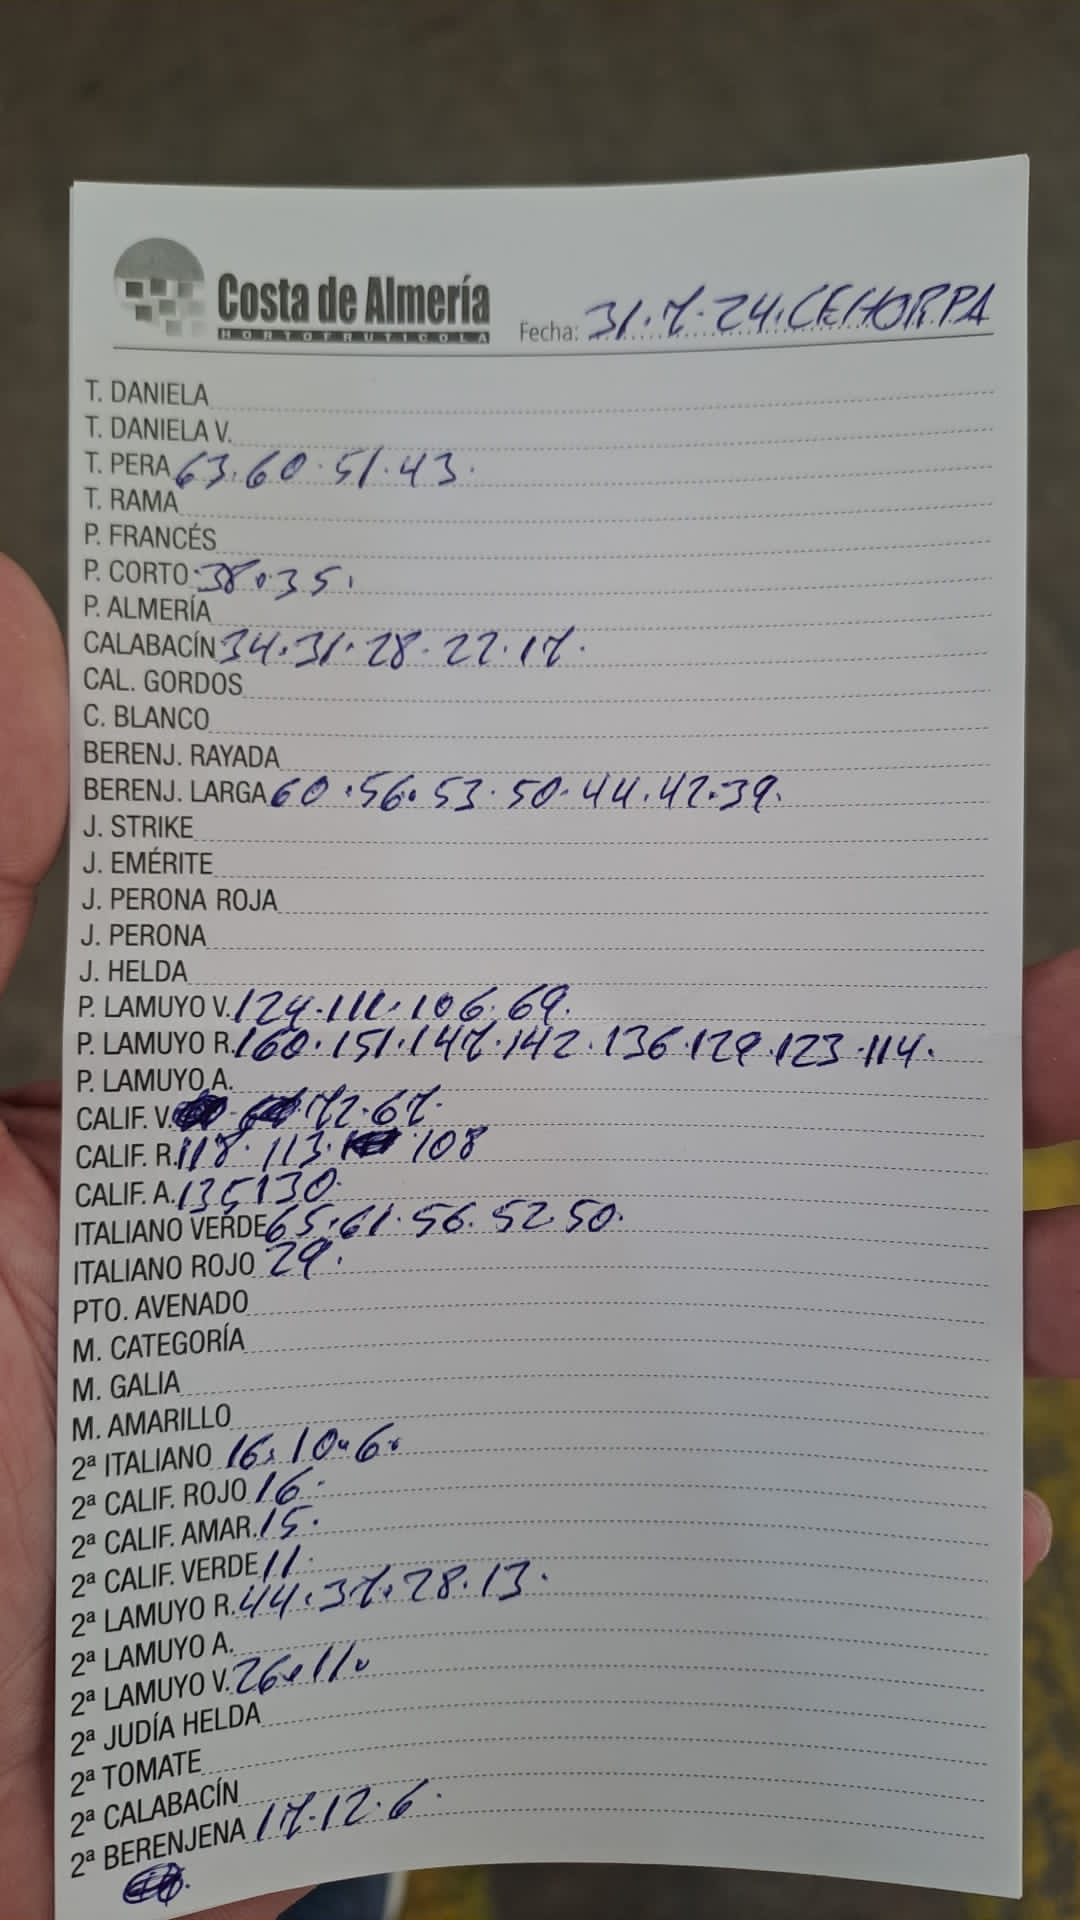 Costa de Almería
HORTOFRUTICOLA
Fecha: 31.7.24.CEHORPA
T. DANIELA
T. DANIELA V.
T. PERA 63.60.51.43.
T. RAMA
P. FRANCÉS
P. CORTO 38.35.
P. ALMERÍA
CALABACÍN 34.31.28.22.17.
CAL. GORDOS
C. BLANCO
BERENJ. RAYADA
BERENJ. LARGA 60.56.53.50.44.42.39.
J. STRIKE
J. EMÉRITE
J. PERONA ROJA
J. PERONA
J. HELDA
P. LAMUYO V. 124.111.106.69.
P. LAMUYO R. 160.151.147.142.136.129.123.114.
P. LAMUYO A.
CALIF. V. 72.67.
CALIF. R. 118.113.108
CALIF. A. 135130.
ITALIANO VERDE 65.61.56.52.50.
ITALIANO ROJO 29.
PTO. AVENADO
M. CATEGORÍA
M. GALIA
M. AMARILLO
2ª ITALIANO 16.10.6.
2ª CALIF. ROJO 16.
2ª CALIF. AMAR. 15.
2ª CALIF. VERDE 11.
2ª LAMUYO R. 44.37.28.13.
2ª LAMUYO A.
2ª LAMUYO V. 26.11.
2ª JUDÍA HELDA
2ª TOMATE
2ª CALABACÍN
2ª BERENJENA 17.12.6.